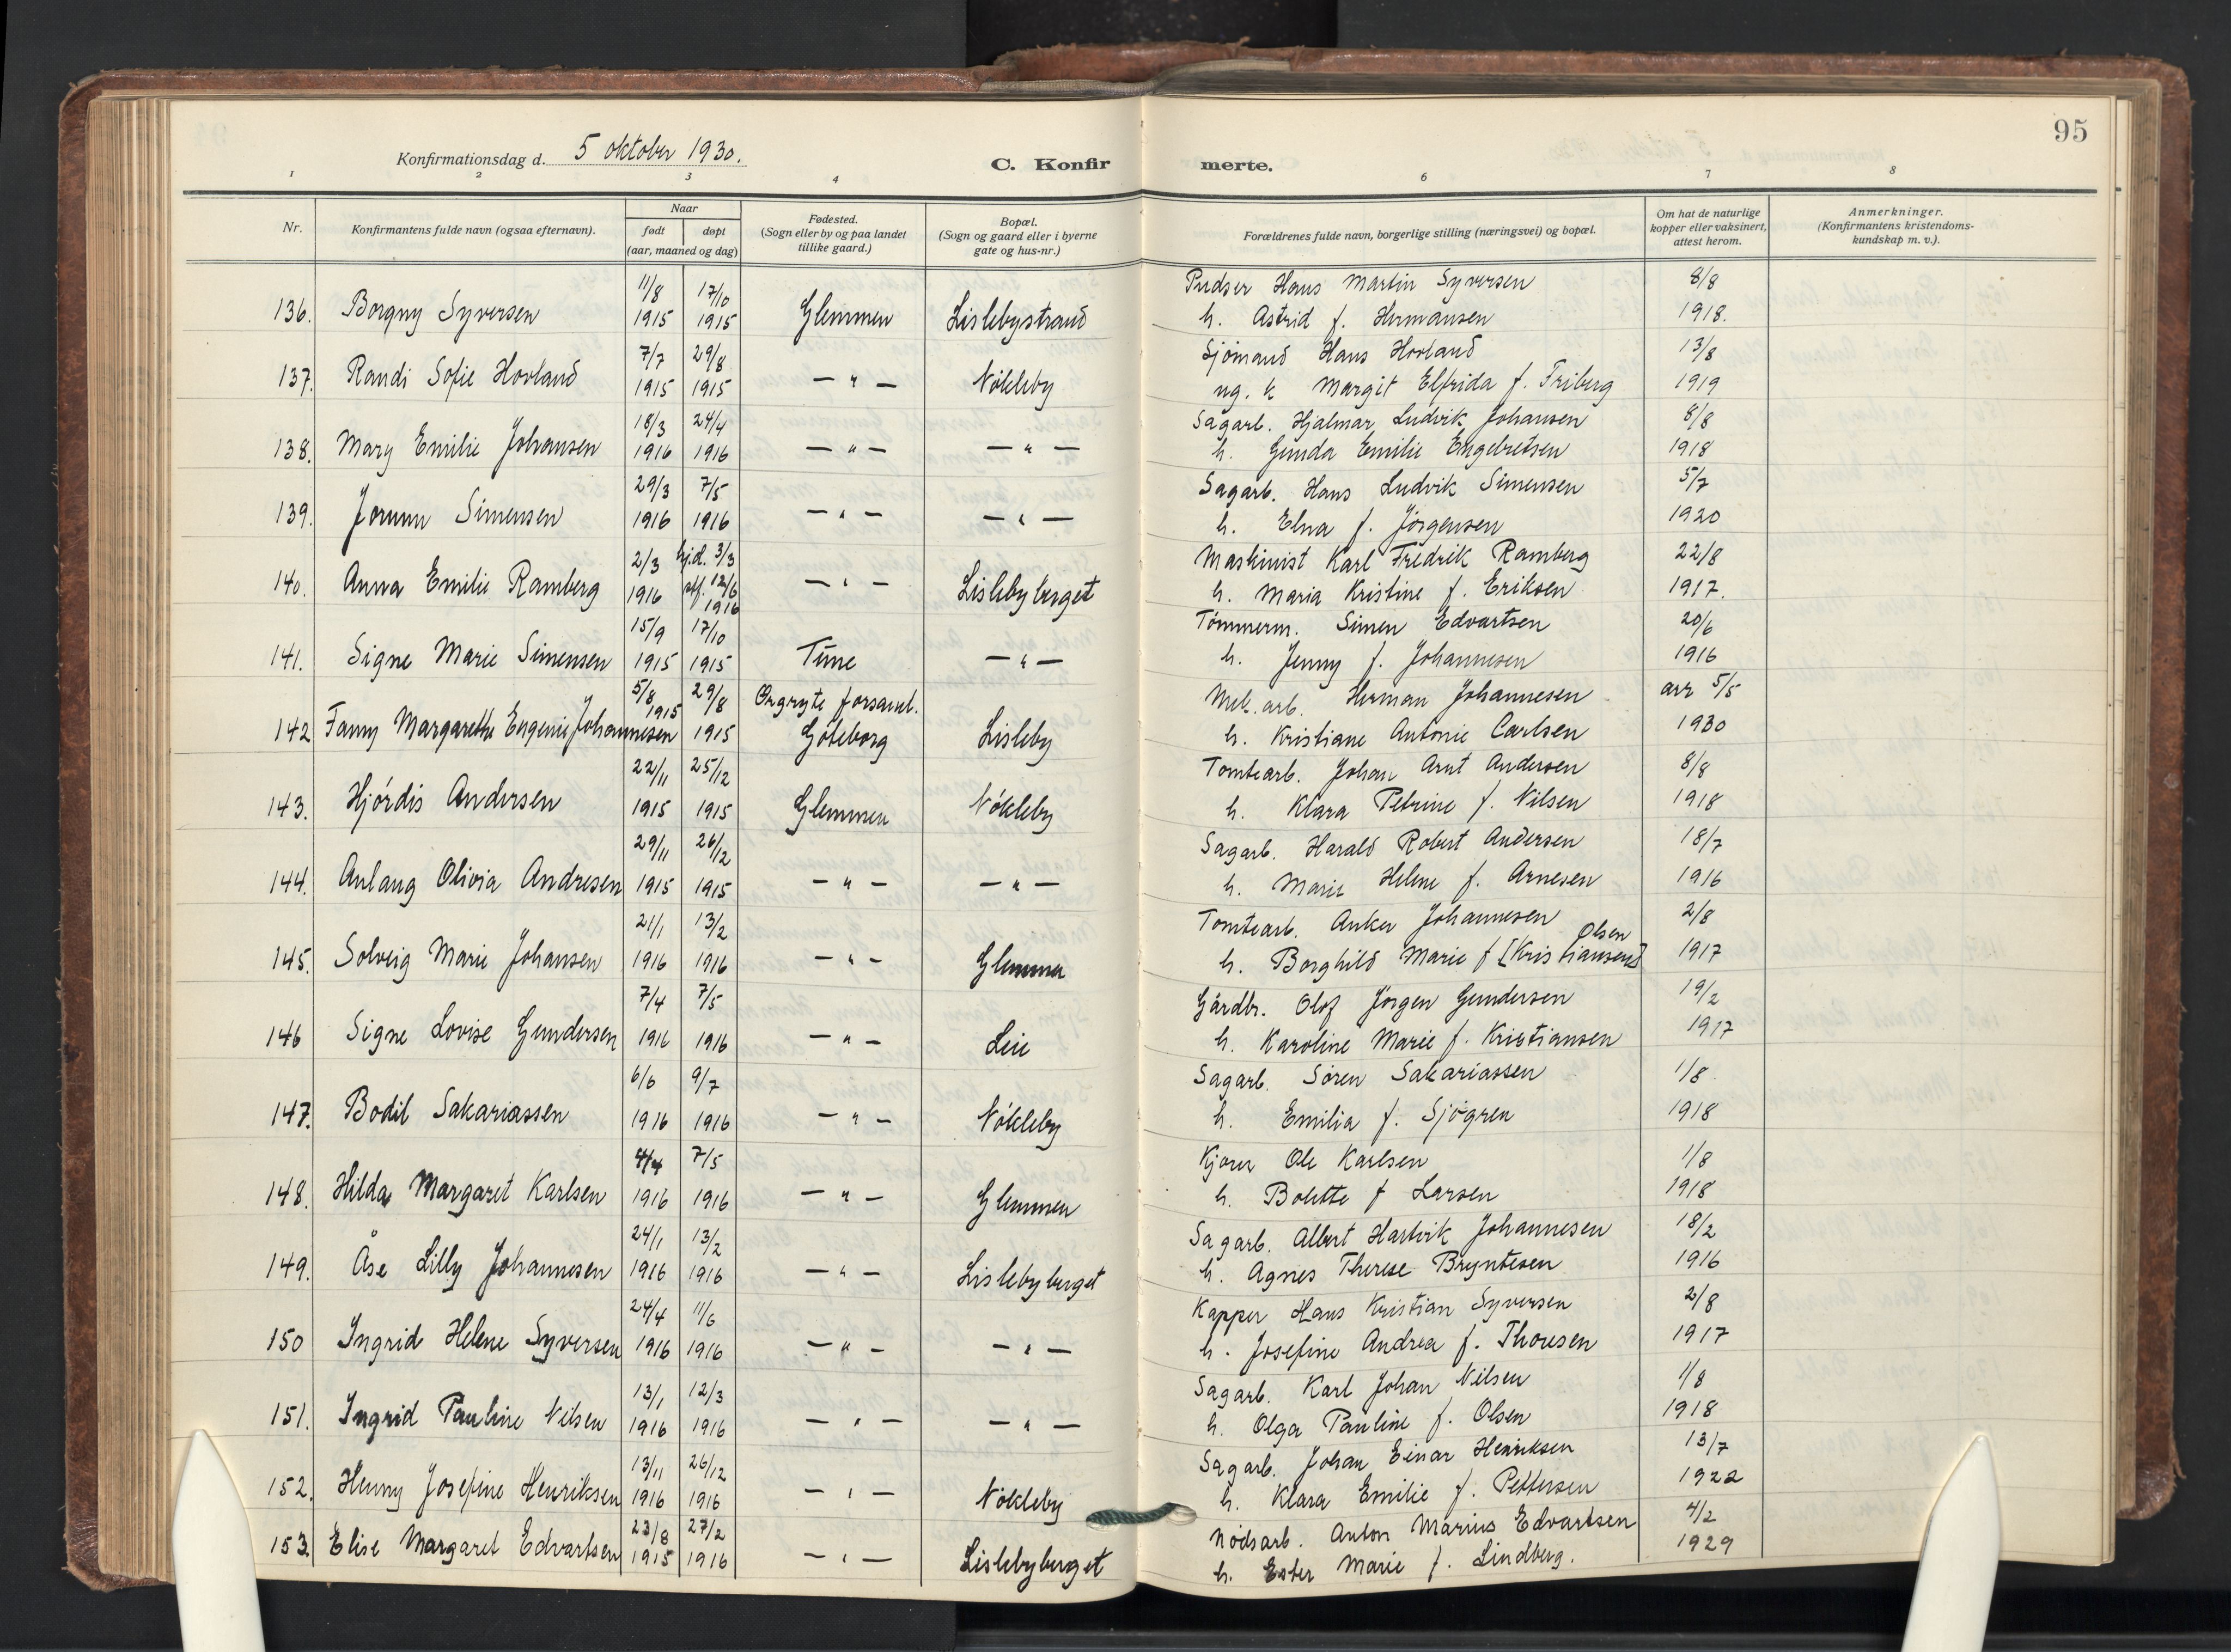 95
Konfirmationsdag d. 5 oktober 1930.
C. Konfirmerte.
1 2 3 4 6 7 8
Nr.
Konfirmantens fulde navn (ogsaa efternavn).
Naar
født døpt
(aar, maaned og dag)
Fødested.
(Sogn eller by og paa landet
tillike gaard.)
Bopæl.
(Sogn og gaard eller i byerne
gate og hus-nr.)
Forældrenes fulde navn, borgerlige stilling (næringsvei) og bopæl.
Om hat de naturlige
kopper eller vaksinert,
attest herom.
Anmerkninger.
(Konfirmantens kristendoms-
kundskap m. v.).
11/8 17/10 Pudser Hans Martin Syversen 8/8
136. Borgny Syversen 1915 1915 Glemmen Lislebystrand h. Astrid f. Hermansen 1918.
7/7 29/8 Sjömand Hans Hovland 13/8
137. Randi Sofie Hovland 1915 1915 — " — Nökleby ug. k Margit Elfrida f. Friberg 1919
18/3 24/4 Sagarb. Hjalmar Ludvik Johansen 8/8
138. Mary Emilie Johansen 1916 1916 — " — — " — h. Gunda Emilie Engebretsen 1918
29/3 7/5 Sagarb. Hans Ludvik Simensen 5/7
139. Jorunn Simensen 1916 1916 — " — — " — h. Elna f. Jörgensen 1920
2/3 hj.d. 3/3 Maskinist Karl Fridrik Ramberg 22/8
140. Anna Emilie Ramberg 1916 12/6 1916 — " — Lislebyberget h. Maria Kristine f. Eriksen 1917.
15/9 17/10 Tömmerm. Simen Edvartsen 20/6
141. Signe Marie Simensen 1915 1915 Tune — " — h. Jenny f. Johannesen 1916
5/8 1915 29/8 Örgryte forsaml. Mek. arb. Herman Johannesen arr 5/5
142 Fanny Margarethe Eugenie Johannesen 1915 Göteborg Lisleby h. Kristiane Antonie Carlsen 1930
22/11 25/12 Tomtearb. Johan Arnt Andersen 8/8
143. Hjördis Andersen 1915 1915 Glemmen Nökleby h. Klara Petrine f. Nilsen 1918
29/11 26/12 Sagarb. Harald Robert Andersen 18/7
144. Aulaug Olivia Andresen 1915 1915 — " — — " — h. Marie Helene f. Arnesen 1916
21/1 13/2 Tomtearb. Anker Johannesen 2/8
Olsen
145. Solveig Marie Johansen 1916 1916 — " — Glemmen h. Borghild Marie f [Kristiansen] 1917
7/4 7/5 Gårdbr. Olof Jörgen Gundersen 19/2
146 Signe Lovise Gundersen 1916 1916 — " — Leie h. Karoline Marie f. Kristiansen 1917
6/6 9/7 Sagarb. Sören Sakariassen 1/8
147. Bodil Sakariassen 1916 1916 — " — Nökleby h. Emilia f. Sjögren 1918
4/4 7/5 Kjörer Ole Karlsen 1/8
148. Hilda Margaret Karlsen 1916 1916 — " — Glemmen h. Bolette f Larsen 1918
24/1 13/2 Sagarb. Albert Hartvik Johannesen 18/2
149. Åse Lilly Johannesen 1916 1916 — " — Lislebyberget h. Agnes Therese Bryntesen 1916
24/4 11/6 Kapper Hans Kristian Syversen 2/8
150 Ingrid Helene Syversen 1916 1916 — " — — " — h. Josefine Andrea f. Thoresen 1917
13/1 12/3 Sagarb. Karl Johan Nilsen 1/8
151. Ingrid Pauline Nilsen 1916 1916 — " — — " — h. Olga Pauline f. Olsen 1918
13/11 26/12 Sagarb. Johan Einar Henriksen 13/7
152. Henny Josefine Henriksen 1916 1916 — " — Nökleby h. Klara Emilie f. Pettersen 1922
23/8 27/2 Nödsarb. Anton Marius Edvartsen 4/2
153. Elise Margaret Edvartsen 1915 1916 — " — Lislebyberget h. Ester Marie f. Lindberg. 1929